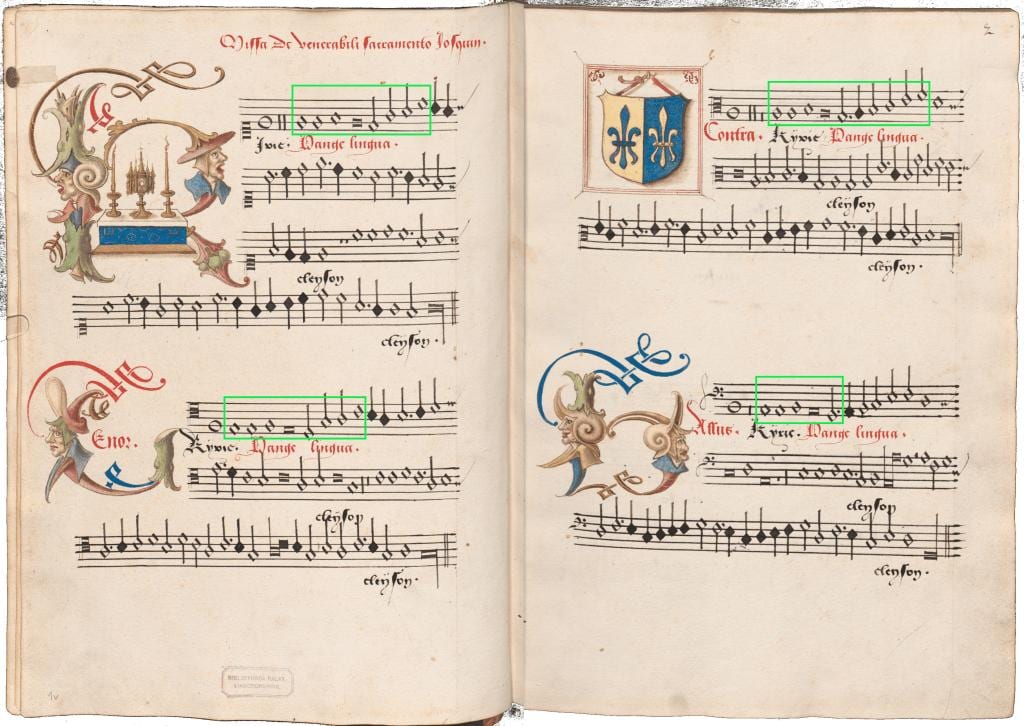 Missa De venerabili sacramento Josquin.
kyrie. Pange lingua.
eleyson
eleyson.
Tenor.
Kyrie. Pange lingua.
eleyson
eleyson.
1v
2
Contra. Kyrie Pange lingua.
eleyson
eleyson.
Bassus. Kyrie. Pange lingua.
eleyson
eleyson.